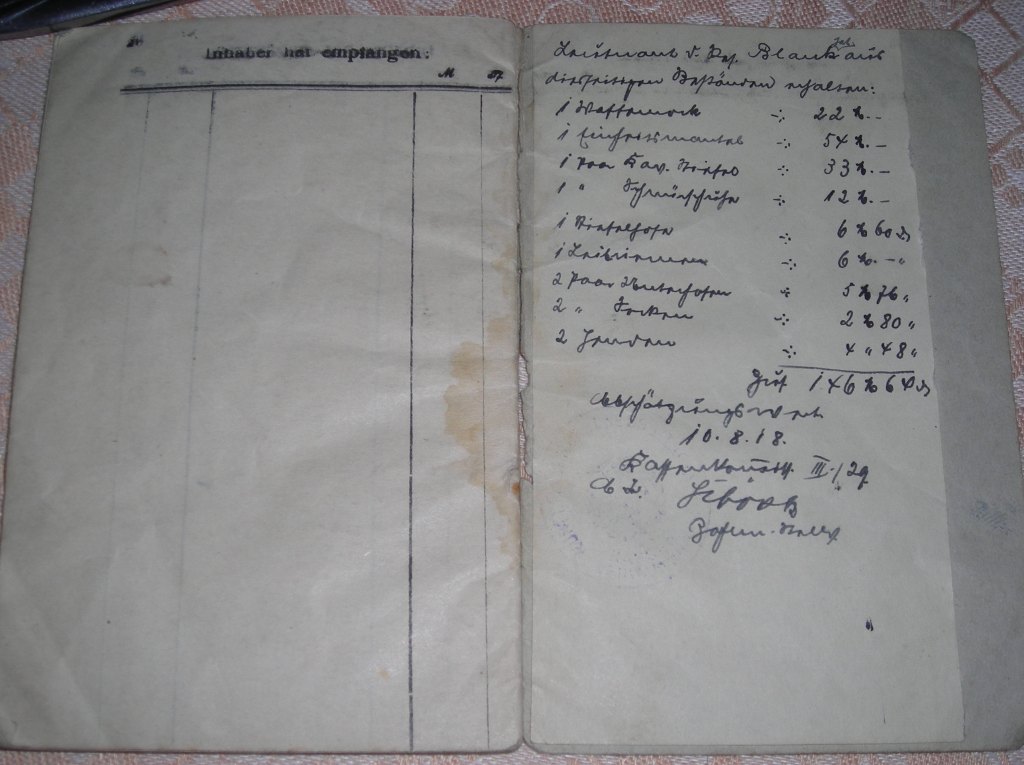 Inhaber hat empfangen:
M Pf.
Leutnant d. Res. Blank aus
diesseitigen Beständen erhalten:
1 Waffenrock 22 M. –
1 Einheitsmantel 54 M. –
1 Paar Kav. Stiefel 33 M. –
1 " Schnürschuhe 12 M. –
1 Stiefelhose 6 M 60 d
1 Leibriemen 6 M. – "
2 Paar Unterhosen 5 M 76 "
2 " Socken 2 M 80 "
2 Hemden 4 " 48 "
146 M 64 d
Abschätzungswert
10.8.18.
III./29